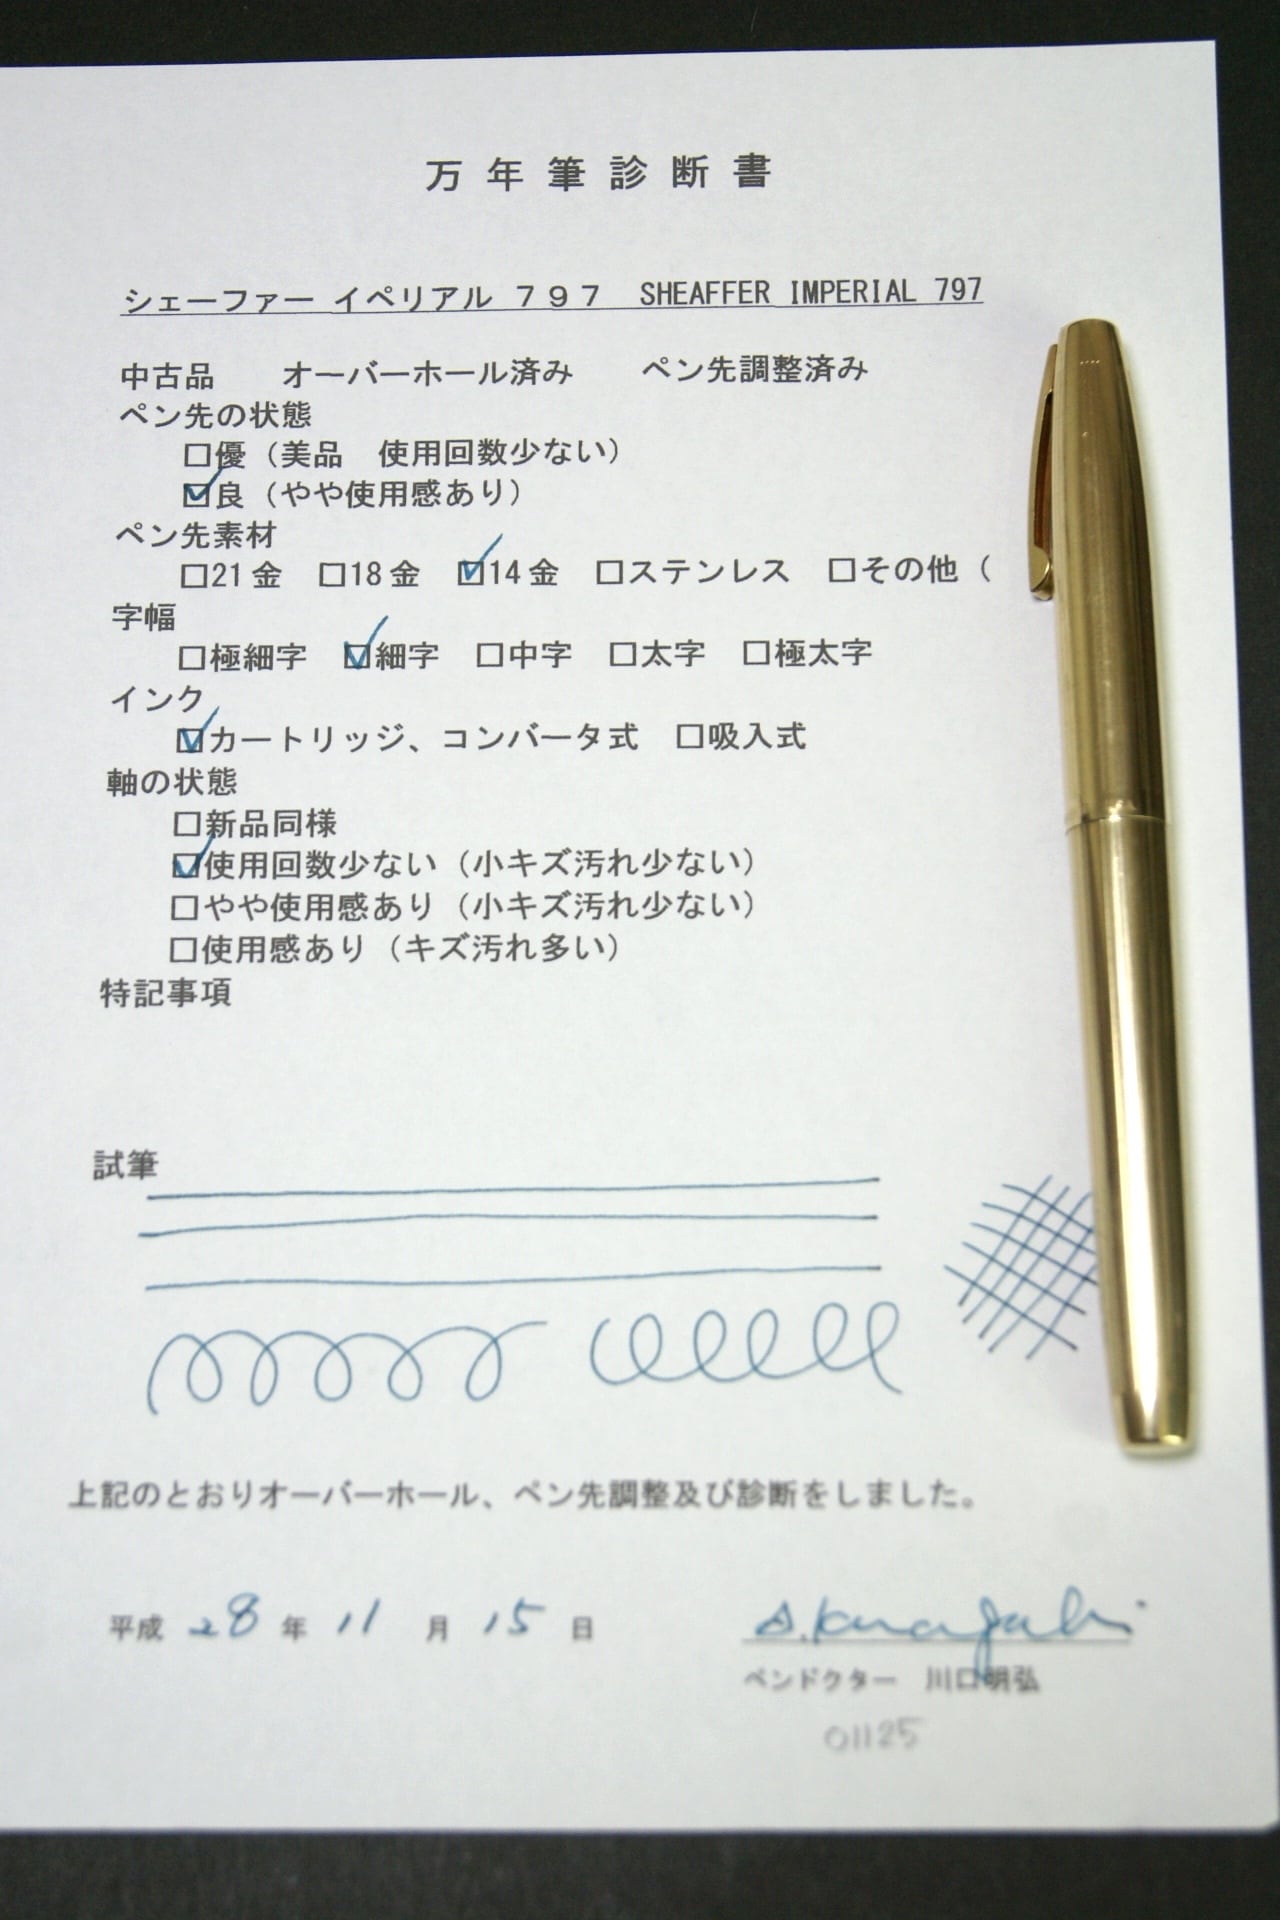 万年筆診断書
シェーファー イペリアル 797 SHEAFFER IMPERIAL 797
中古品 オーバーホール済み ペン先調整済み
ペン先の状態
□優（美品 使用回数少ない）
☑良（やや使用感あり）
ペン先素材
□21金 □18金 ☑14金 □ステンレス □その他（
字幅
□極細字 ☑細字 □中字 □太字 □極太字
インク
☑カートリッジ、コンバータ式 □吸入式
軸の状態
□新品同様
☑使用回数少ない（小キズ汚れ少ない）
□やや使用感あり（小キズ汚れ少ない）
□使用感あり（キズ汚れ多い）
特記事項
試筆
上記のとおりオーバーホール、ペン先調整及び診断をしました。
平成 28 年 11 月 15 日
ペンドクター 川口明弘
01125